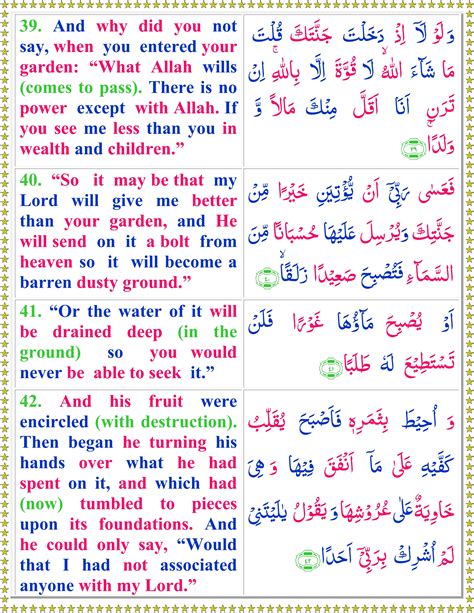 39. And why did you not
say, when you entered your
garden: “What Allah wills
(comes to pass). There is no
power except with Allah. If
you see me less than you in
wealth and children.”
وَلَوْ لَاۤ اِذْ دَخَلْتَ جَنَّتَكَ قُلْتَ
مَا شَآءَ اللّٰهُ ۙ لَا قُوَّةَ اِلَّا بِاللّٰهِ ۚ اِنْ
تَرَنِ اَنَا اَقَلَّ مِنْكَ مَالًا وَّ
وَلَدًا ۚ ﴿۳۹﴾
40. “So it may be that my
Lord will give me better
than your garden, and He
will send on it a bolt from
heaven so it will become a
barren dusty ground.”
فَعَسٰى رَبِّيْۤ اَنْ يُّؤْتِيَنِ خَيْرًا مِّنْ
جَنَّتِكَ وَيُرْسِلَ عَلَيْهَا حُسْبَانًا مِّنَ
السَّمَآءِ فَتُصْبِحَ صَعِيْدًا زَلَقًا ۙ ﴿۴۰﴾
41. “Or the water of it will
be drained deep (in the
ground) so you would
never be able to seek it.”
اَوْ يُصْبِحَ مَآؤُهَا غَوْرًا فَلَنْ
تَسْتَطِيْعَ لَهٗ طَلَبًا ﴿۴۱﴾
42. And his fruit were
encircled (with destruction).
Then began he turning his
hands over what he had
spent on it, and which had
(now) tumbled to pieces
upon its foundations. And
he could only say, “Would
that I had not associated
anyone with my Lord.”
وَ اُحِيْطَ بِثَمَرِهٖ فَاَصْبَحَ يُقَلِّبُ
كَفَّيْهِ عَلٰى مَاۤ اَنْفَقَ فِيْهَا وَ هِىَ
خَاوِيَةٌ عَلٰى عُرُوْشِهَا وَيَقُوْلُ يٰلَيْتَنِيْ
لَمْ اُشْرِكْ بِرَبِّيْۤ اَحَدًا ﴿۴۲﴾